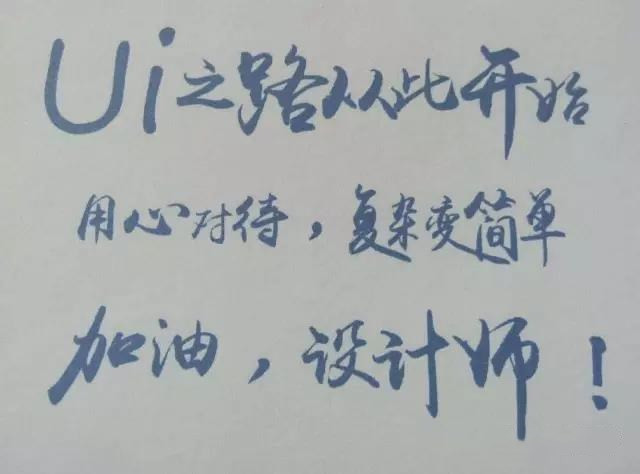 Ui之路从此开始
用心对待，复杂变简单
加油，设计师！